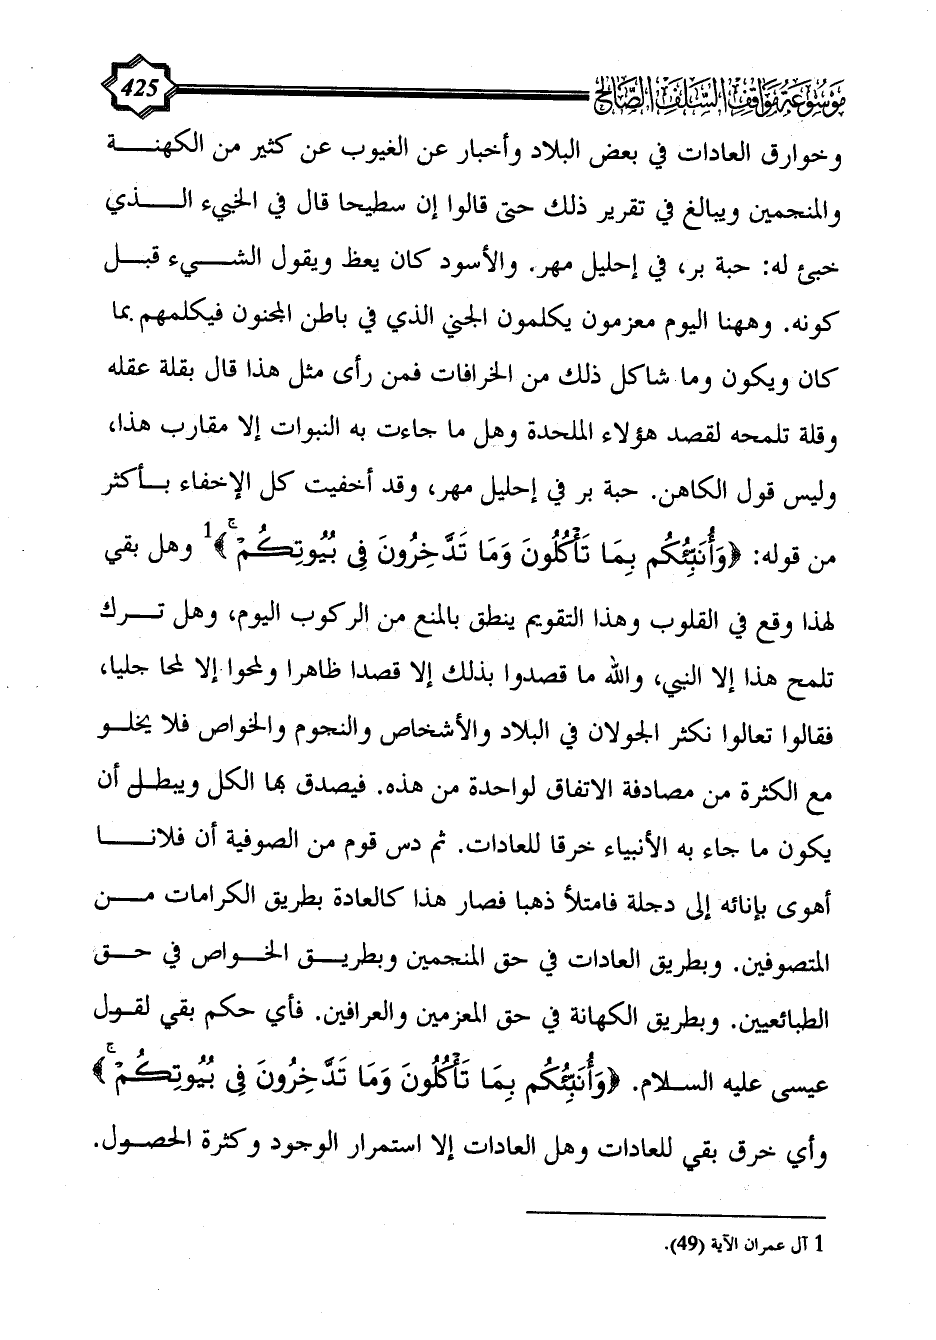 موسوعة مواقف السلف الصالح
425
وخوارق العادات في بعض البلاد وأخبار عن الغيوب عن كثير من الكهنة
والمنجمين ويبالغ في تقرير ذلك حتى قالوا إن سطيحا قال في الخبيء الذي
خبئ له: حبة بر، في إحليل مهر. والأسود كان يعظ ويقول الشيء قبل
كونه. وههنا اليوم معزمون يكلمون الجني الذي في باطن المجنون فيكلمهم بما
كان ويكون وما شاكل ذلك من الخرافات فمن رأى مثل هذا قال بقلة عقله
وقلة تلمحه لقصد هؤلاء الملحدة وهل ما جاءت به النبوات إلا مقارب هذا،
وليس قول الكاهن. حبة بر في إحليل مهر، وقد أخفيت كل الإخفاء بأكثر
من قوله: ﴿وَأُنَبِّئُكُم بِمَا تَأْكُلُونَ وَمَا تَدَّخِرُونَ فِي بُيُوتِكُمْ ۚ﴾1 وهل بقي
لهذا وقع في القلوب وهذا التقويم ينطق بالمنع من الركوب اليوم، وهل ترك
تلمح هذا إلا النبي، والله ما قصدوا بذلك إلا قصدا ظاهرا ولمحوا إلا لمحا جليا،
فقالوا تعالوا نكثر الجولان في البلاد والأشخاص والنجوم والخواص فلا يخلو
مع الكثرة من مصادفة الاتفاق لواحدة من هذه. فيصدق بها الكل ويبطل أن
يكون ما جاء به الأنبياء خرقا للعادات. ثم دس قوم من الصوفية أن فلانا
أهوى بإنائه إلى دجلة فامتلأ ذهبا فصار هذا كالعادة بطريق الكرامات من
المتصوفين. وبطريق العادات في حق المنجمين وبطريق الخواص في حق
الطبائعيين. وبطريق الكهانة في حق المعزمين والعرافين. فأي حكم بقي لقول
عيسى عليه السلام. ﴿وَأُنَبِّئُكُم بِمَا تَأْكُلُونَ وَمَا تَدَّخِرُونَ فِي بُيُوتِكُمْ ۚ﴾
وأي خرق بقي للعادات وهل العادات إلا استمرار الوجود وكثرة الحصول.
1 آل عمران الآية (49).